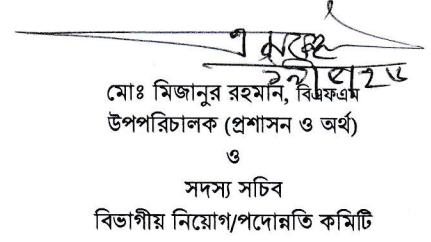 মোঃ মিজানুর রহমান, বিএফএম
উপপরিচালক (প্রশাসন ও অর্থ)
ও
সদস্য সচিব
বিভাগীয় নিয়োগ/পদোন্নতি কমিটি